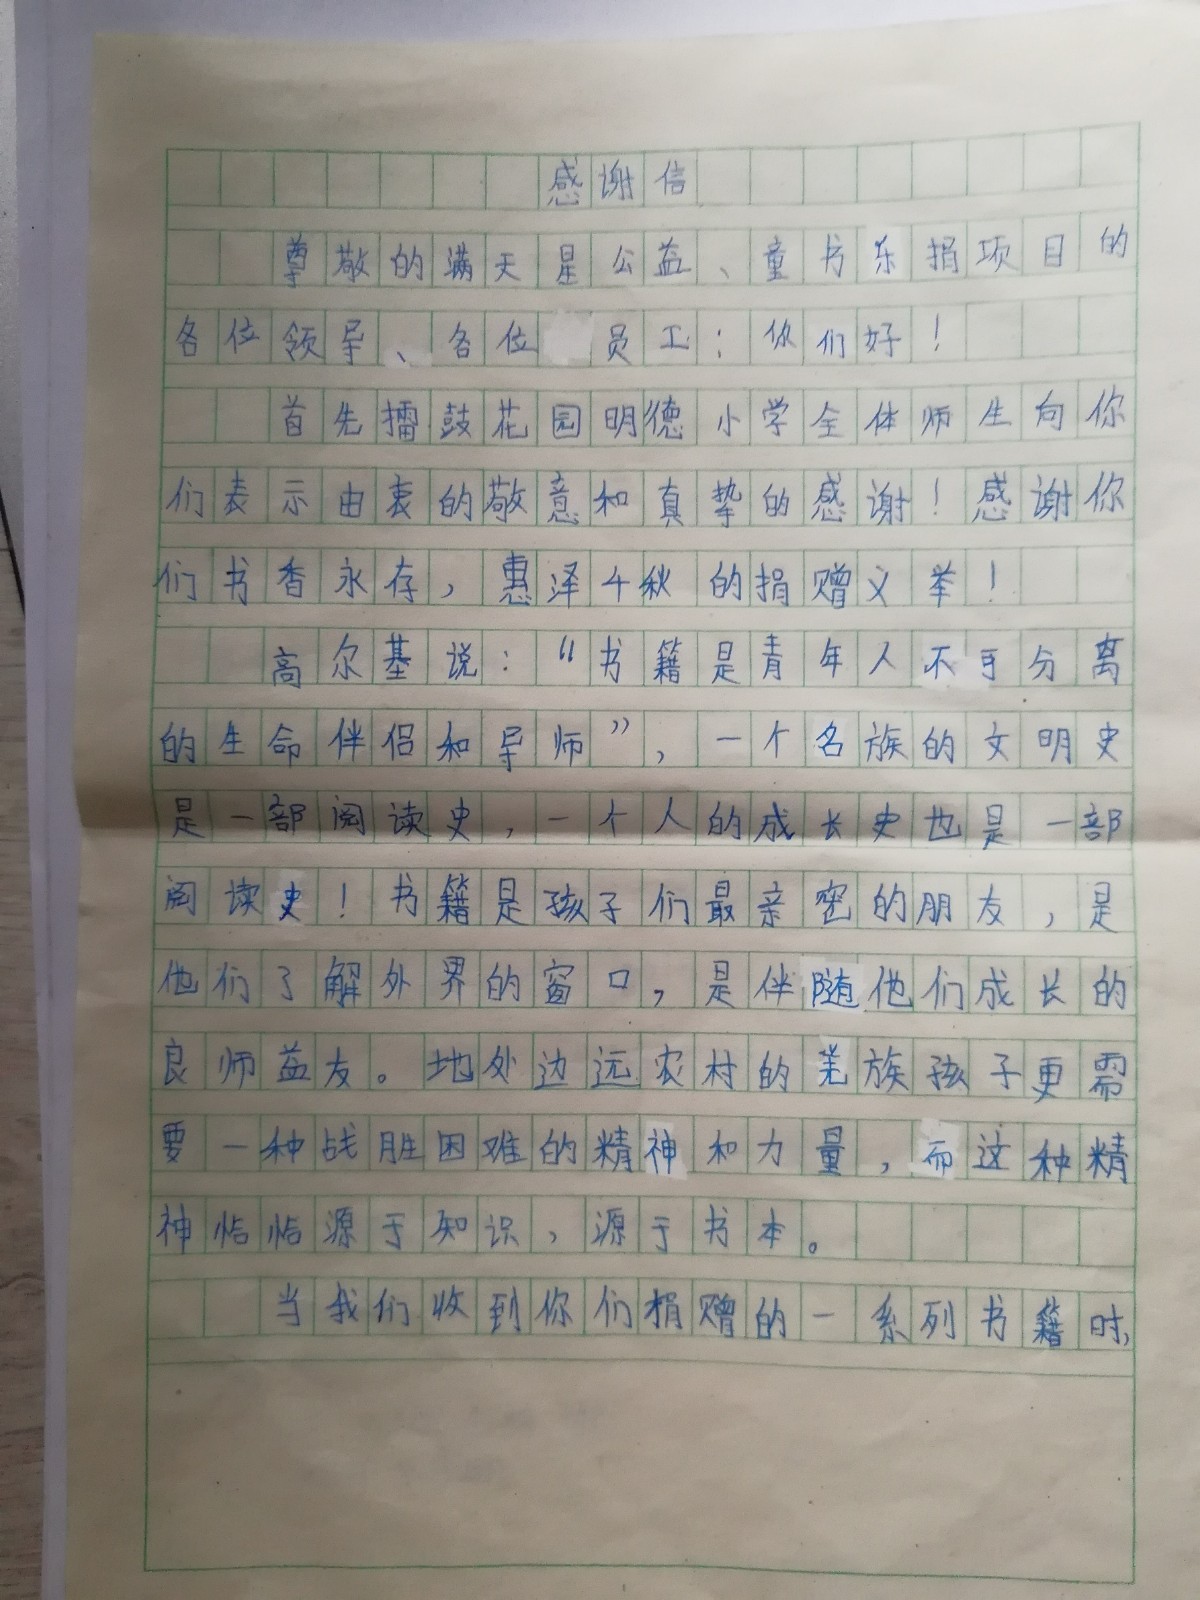 感谢信
尊敬的满天星公益、童书乐捐项目的
各位领导、各位员工：你们好！
首先擂鼓花园明德小学全体师生向你
们表示由衷的敬意和真挚的感谢！感谢你
们书香永存，惠泽千秋的捐赠义举！
高尔基说：“书籍是青年人不可分离
的生命伴侣和导师”，一个名族的文明史
是一部阅读史，一个人的成长史也是一部
阅读史！书籍是孩子们最亲密的朋友，是
他们了解外界的窗口，是伴随他们成长的
良师益友。地处边远农村的羌族孩子更需
要一种战胜困难的精神和力量，而这种精
神恰恰源于知识，源于书本。
当我们收到你们捐赠的一系列书籍时，